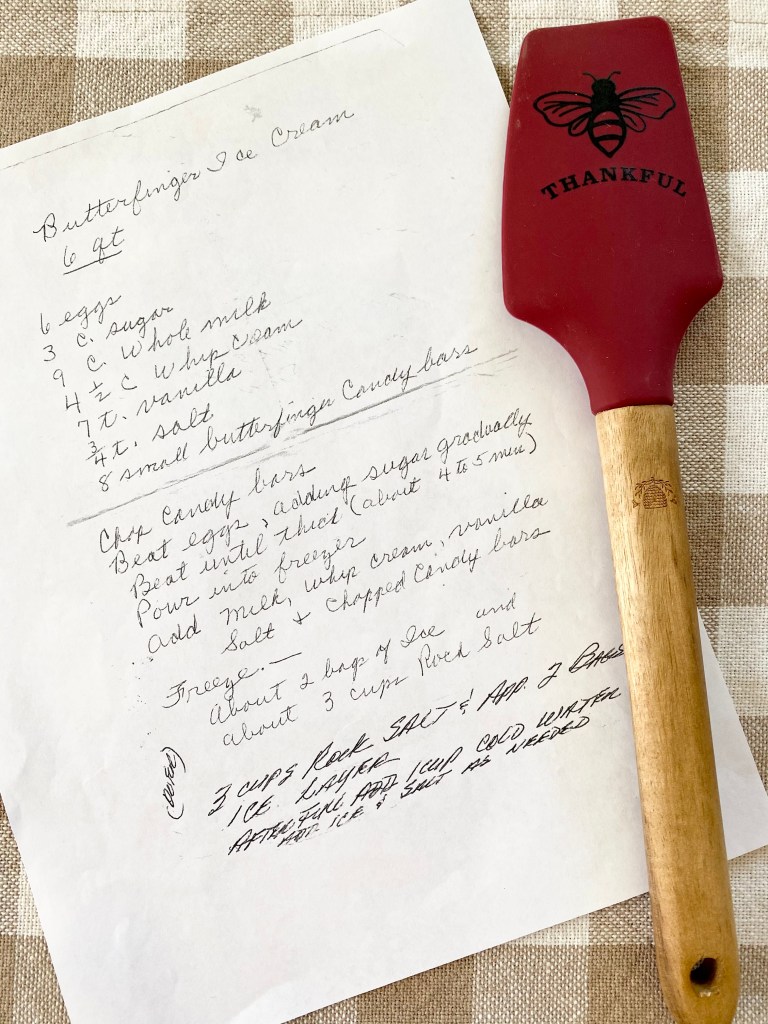 Butterfinger Ice Cream
6 qt
6 eggs
3 c. sugar
9 c. whole milk
4 ½ c whip cream
7 t. vanilla
¾ t. salt
8 small butterfinger Candy bars
Chop Candy bars
Beat eggs, adding sugar gradually
Beat until thick (about 4 to 5 min)
Pour into freezer
add milk, whip cream, vanilla
Salt & Chopped Candy bars
Freeze.—
About 2 bag of Ice and
about 3 cups Rock Salt
3 CUPS ROCK SALT & APP. 2 BAGS
ICE LAYER
AFTER FULL ADD 1 CUP COLD WATER
ADD ICE & SALT AS NEEDED
(OVER)
THANKFUL